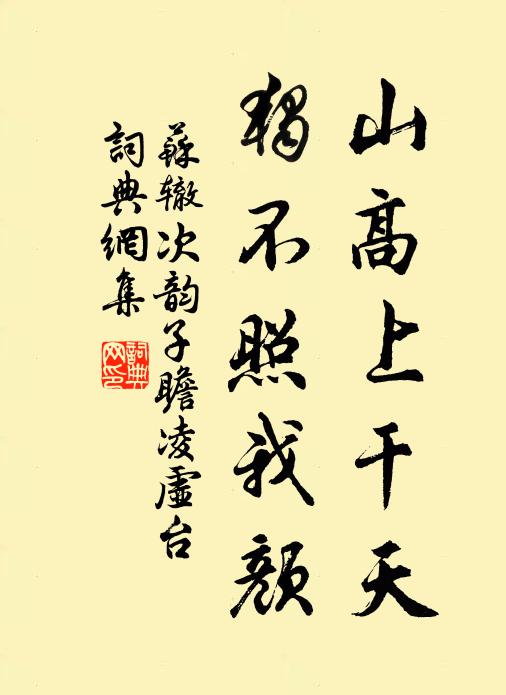 山高上干天
獨不照我顏
蘇辙次韵子瞻凌虛台
詞典網集
詞典
网印